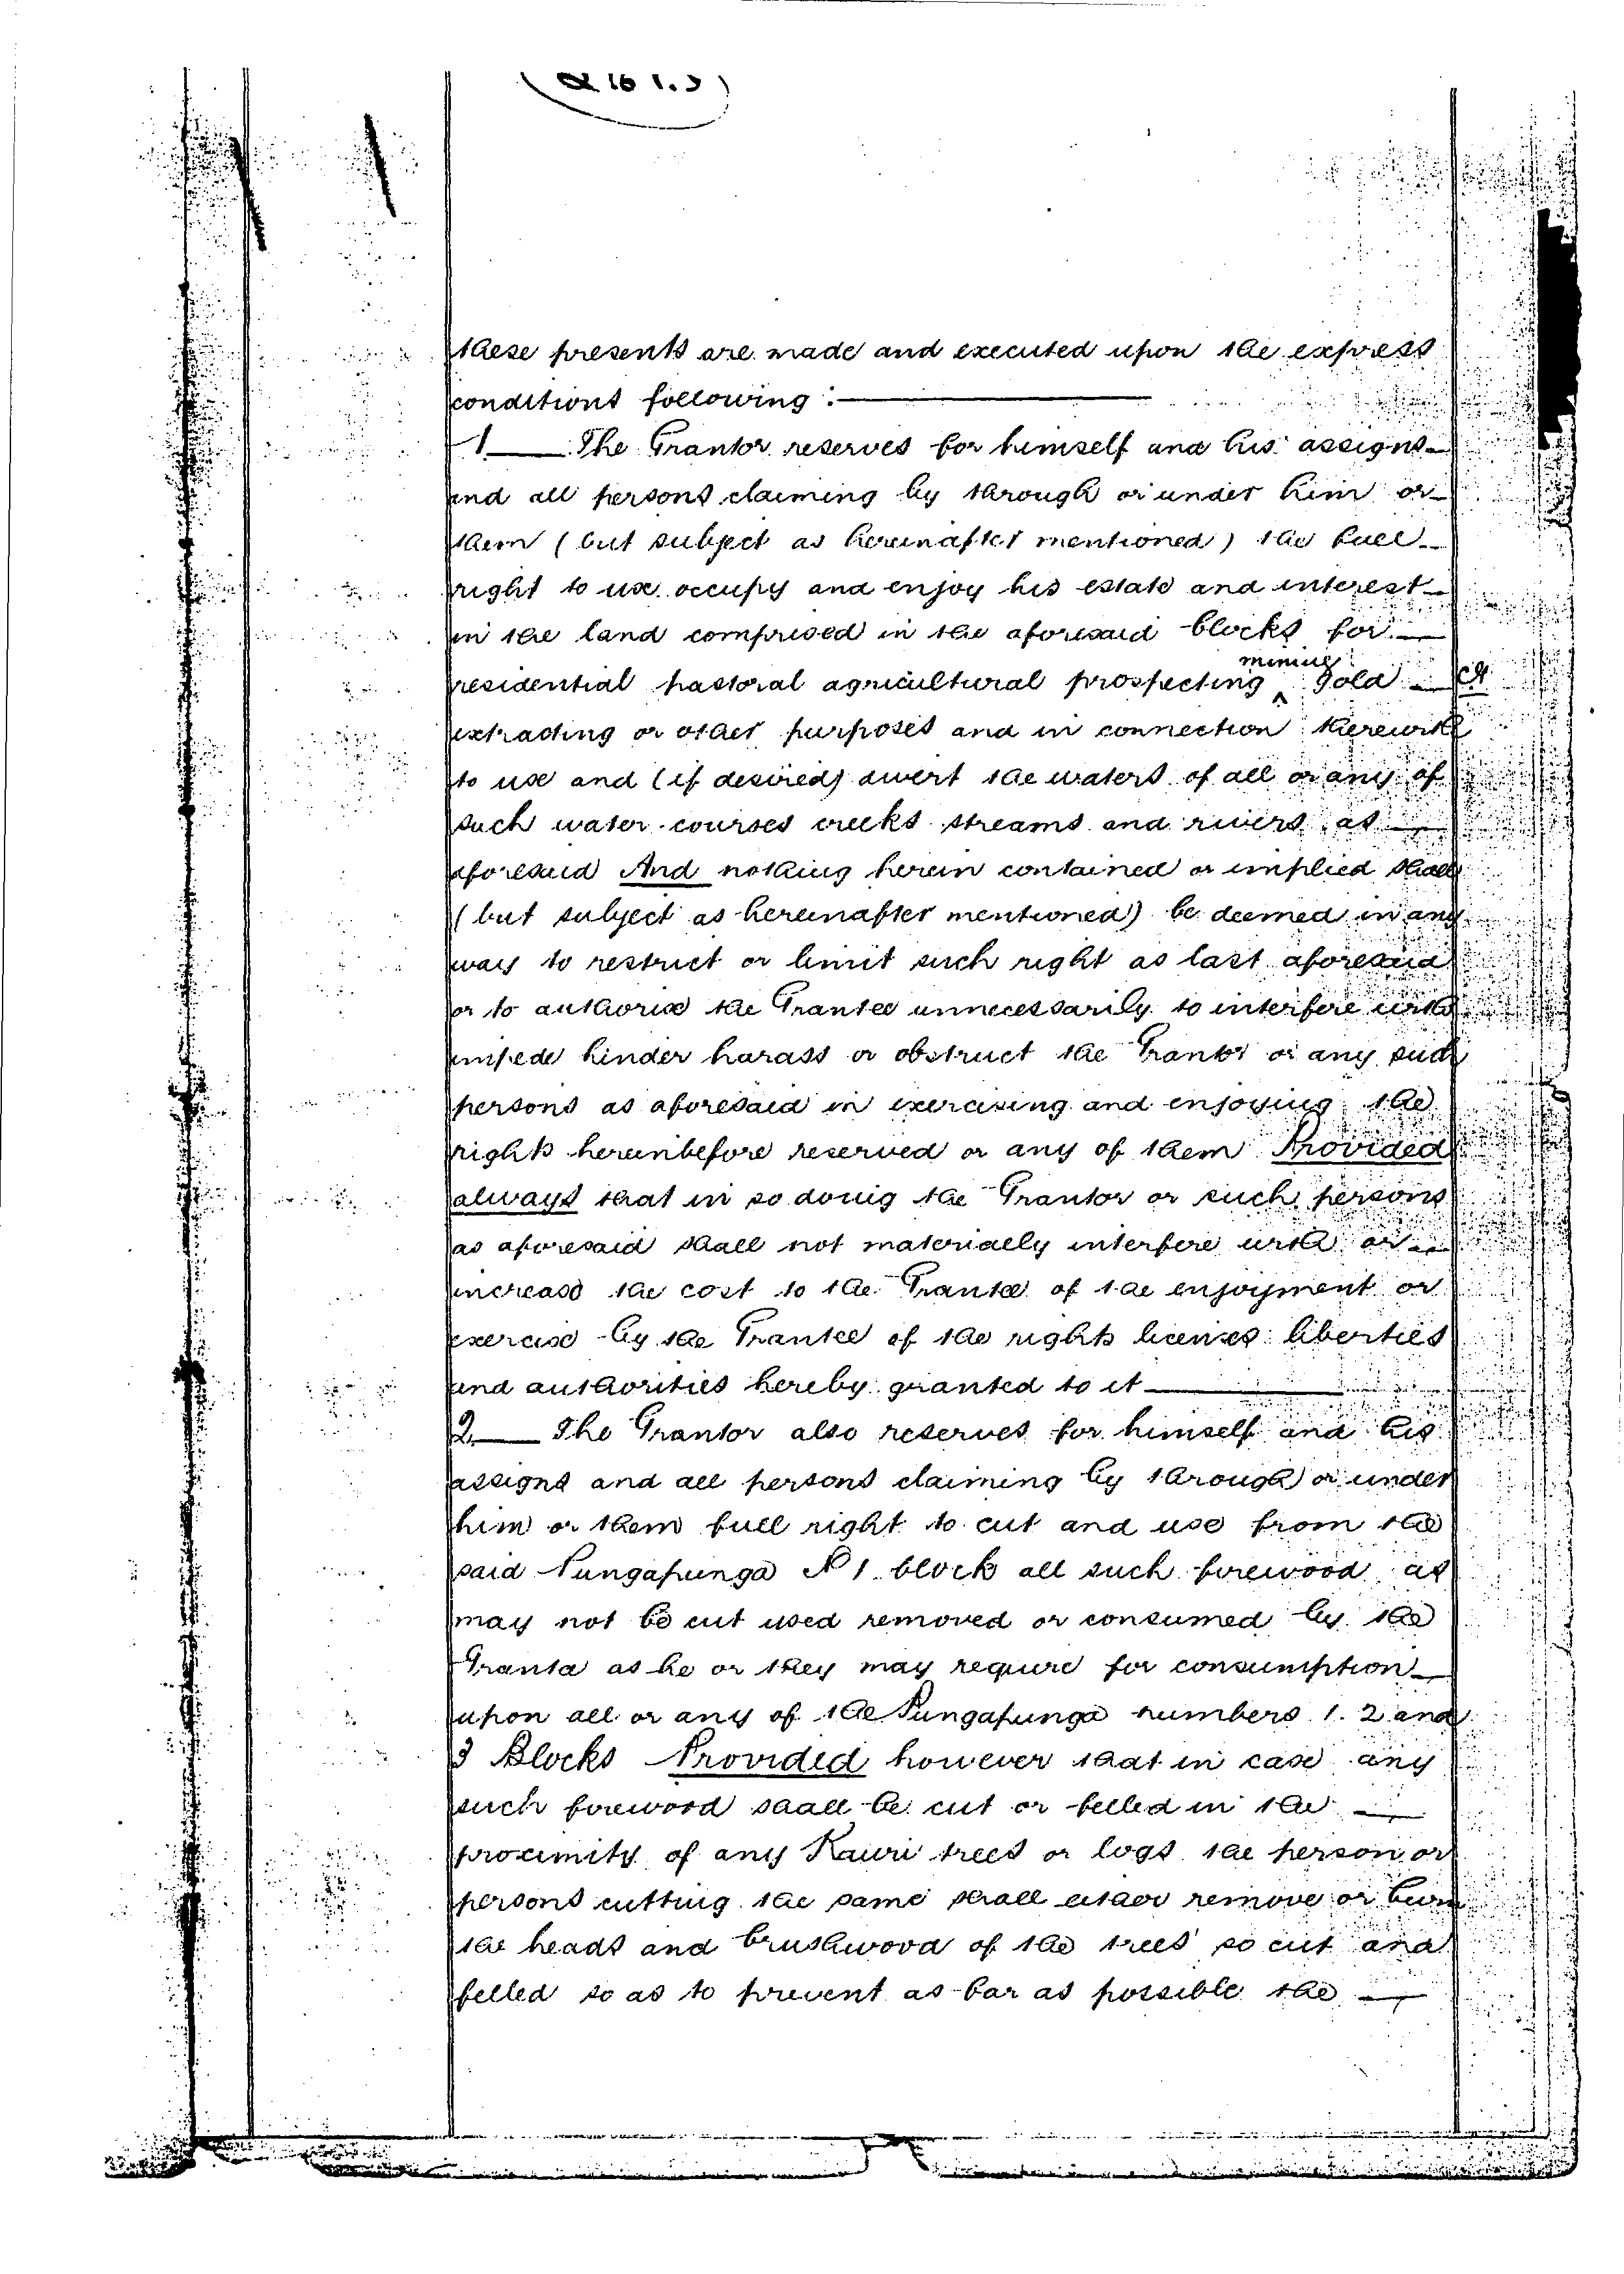 these presents are made and executed upon the express
conditions following :
1 The Grantor reserves for himself and his assigns
and all persons claiming by through or under him or
them (but subject as hereinafter mentioned) the full
right to use occupy and enjoy his estate and interest
in the land comprised in the aforesaid blocks for
mining
residential pastoral agricultural prospecting ^ gold
extracting or other purposes and in connection therewith
to use and (if desired) divert the waters of all or any of
such water-courses creeks streams and rivers as
aforesaid And nothing herein contained or implied shall
(but subject as hereinafter mentioned) be deemed in any
way to restrict or limit such right as last aforesaid
or to authorise the Grantee unnecessarily to interfere with
impede hinder harass or obstruct the Grantor or any such
persons as aforesaid in exercising and enjoying the
rights hereinbefore reserved or any of them Provided
always that in so doing the Grantor or such persons
as aforesaid shall not materially interfere with or
increase the cost to the Grantee of the enjoyment or
exercise by the Grantee of the rights licenses liberties
and authorities hereby granted to it
2 The Grantor also reserves for himself and his
assigns and all persons claiming by through or under
him or them full right to cut and use from the
said Pungapunga No 1 block all such firewood as
may not be cut used removed or consumed by the
Grantee as he or they may require for consumption
upon all or any of the Pungapunga numbers 1. 2 and
3 Blocks Provided however that in case any
such firewood shall be cut or felled in the
proximity of any Kauri trees or logs the person or
persons cutting the same shall either remove or burn
the heads and brushwood of the trees so cut and
felled so as to prevent as far as possible the